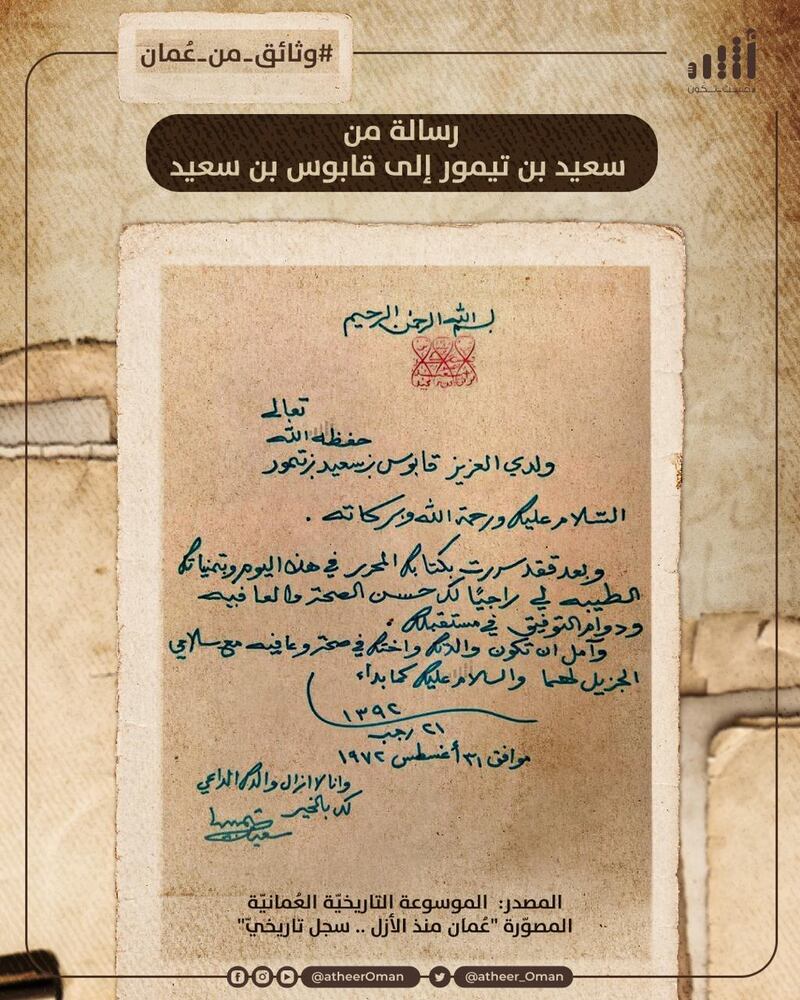 #وثائق_من_عُمان
أثير
رسالة من
سعيد بن تيمور إلى قابوس بن سعيد
بسم الله الرحمن الرحيم
تعالى
حفظه الله
ولدي العزيز قابوس بن سعيد بن تيمور
السلام عليكم ورحمة الله وبركاته .
وبعد فقد سررت بكتابك المحرر في هذا اليوم وبتمنياتك
الطيبه لي راجيًا لك حسن الصحة والعافيه
ودوام التوفيق في مستقبلك .
وآمل ان تكون والدتك واختك في صحة وعافيه مع سلامي
الجزيل لهما والسلام عليك كما بداء
١٣٩٢
٢١ رجب
موافق ٣١ أغسطس ١٩٧٢
وانا لا ازال والدك الداعي
لك بالخير
سعيد بن تيمور
المصدر: الموسوعة التاريخيّة العُمانيّة
المصوّرة "عُمان منذ الأزل .. سجل تاريخيّ"
@atheerOman
@atheer_Oman